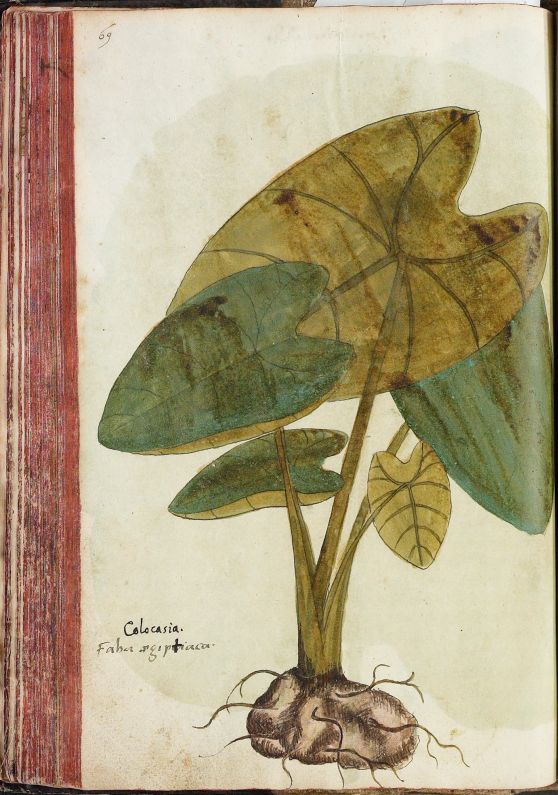 69
Colocasia.
Faba ægiptiaca.